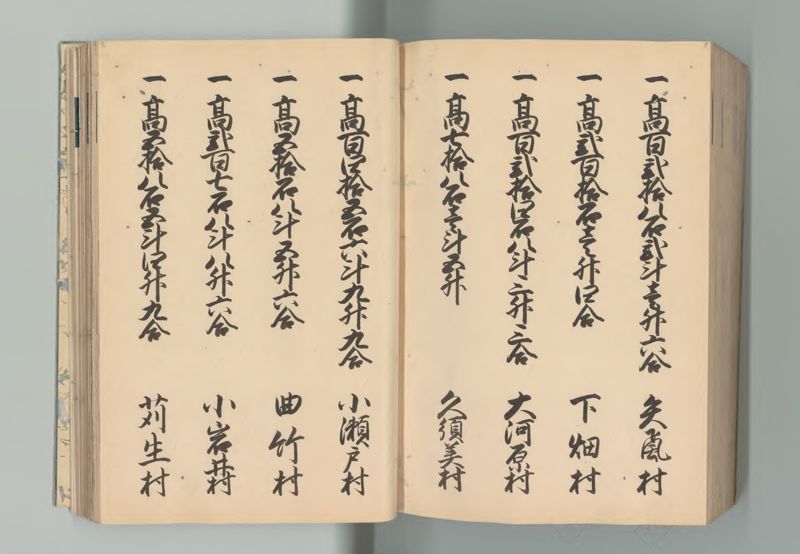 一 高百弐拾八石弐斗壱升六合 矢颪村
一 高弐百拾石壱升四合 下畑村
一 高百弐拾四石八斗三升三合 大河原村
一 高七拾八石壱斗五升 久須美村
一 高百四拾五石六斗九升九合 小瀬戸村
一 高五拾石八斗五升六合 曲竹村
一 高弐百七石八斗八升六合 小岩井村
一 高五拾八石五斗四升九合 苅生村